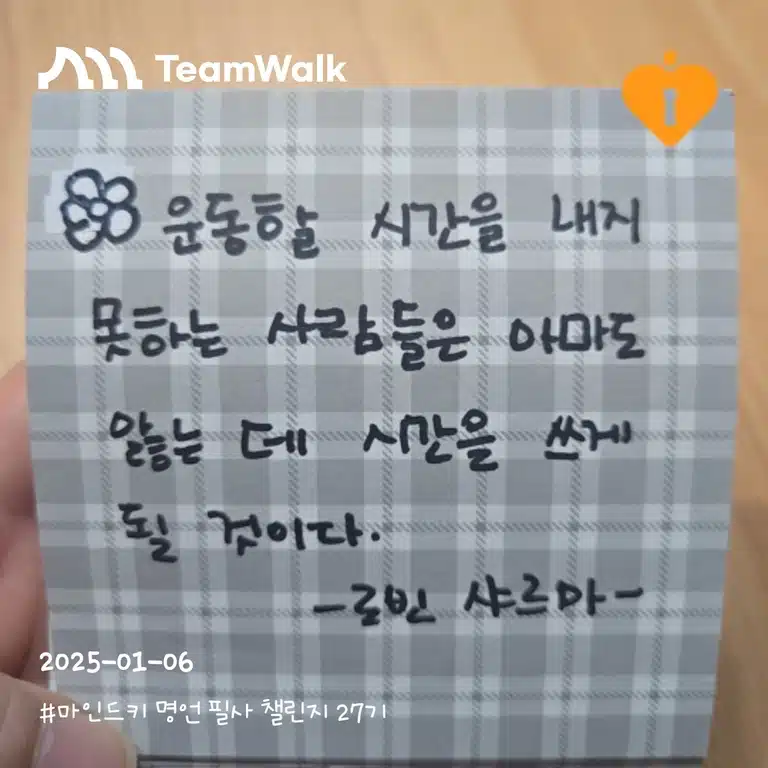 TeamWalk
운동할 시간을 내지
못하는 사람들은 아마도
앓는 데 시간을 쓰게
될 것이다.
-로빈 샤르마-
2025-01-06
#마인드키 명언 필사 챌린지 27기